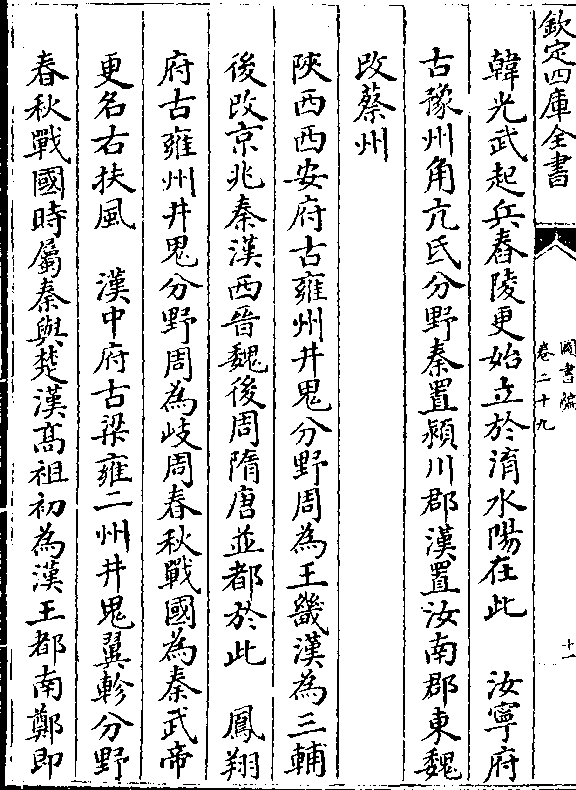 欽定四庫全書
圖書編
卷二十九
十一
韓光武起兵舂陵更始立於淯水陽在此　汝寧府
古豫州角亢氐分野秦置潁川郡漢置汝南郡東魏
改蔡州
陜西西安府古雍州井鬼分野周為王畿漢為三輔
後改京兆秦漢西晉魏後周隋唐並都於此　鳳翔
府古雍州井鬼分野周為岐周春秋戰國為秦武帝
更名右扶風　漢中府古梁雍二州井鬼翼軫分野
春秋戰國時屬秦與楚漢髙祖初為漢王都南鄭即